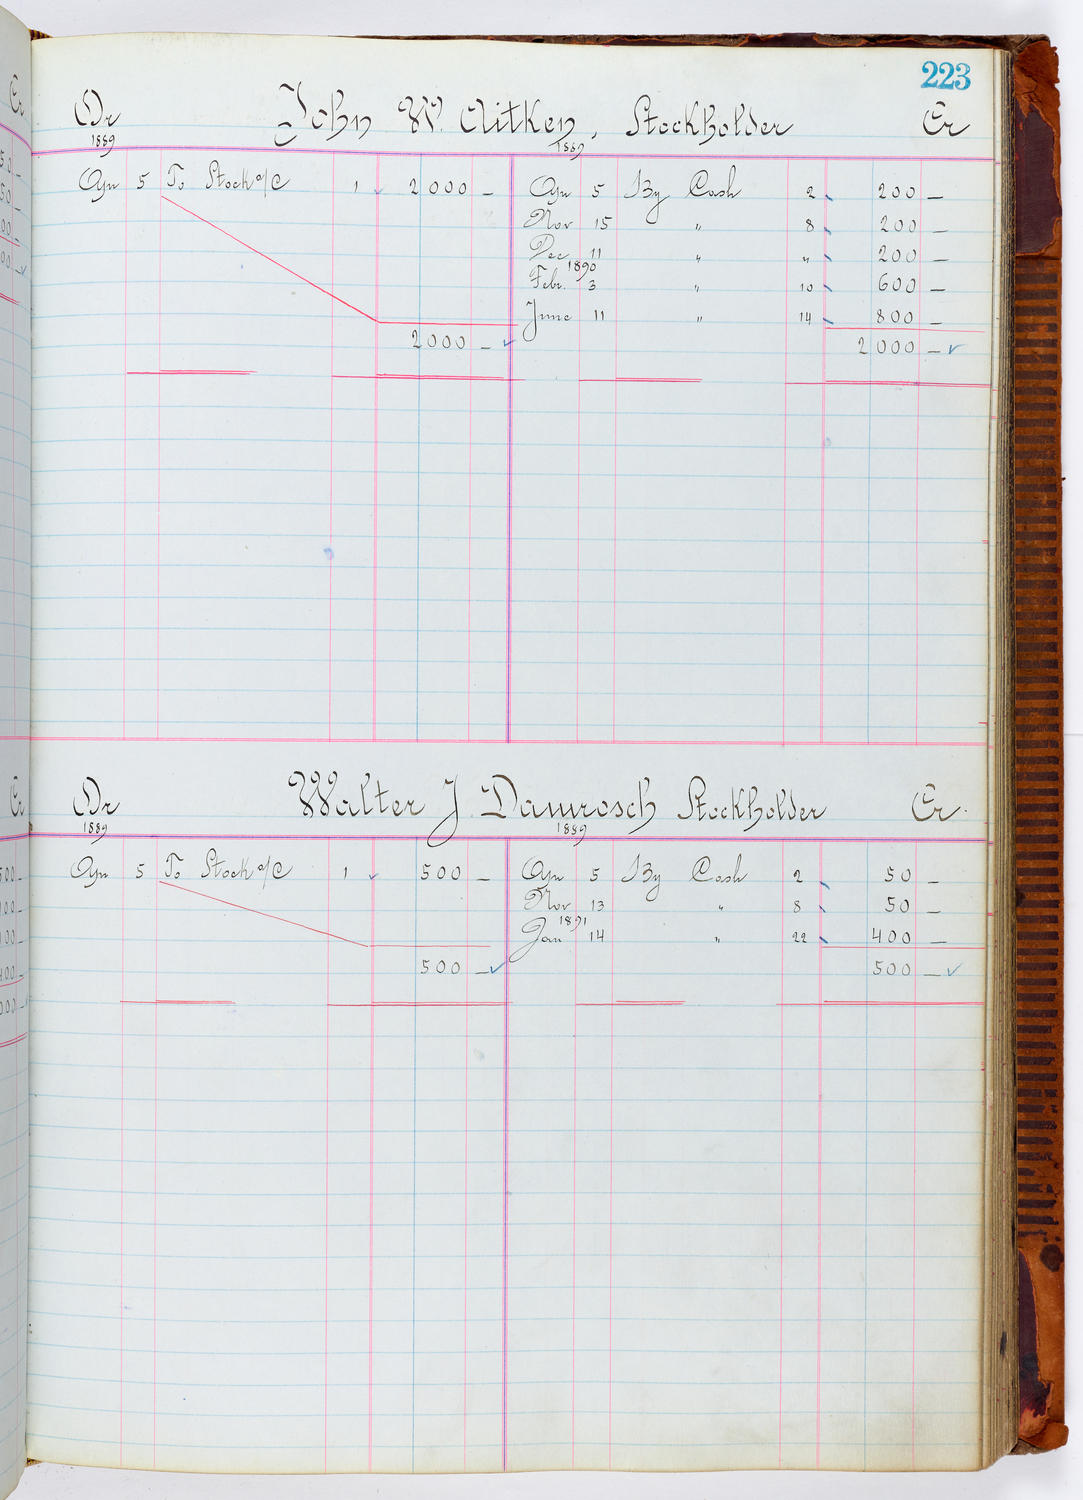 223
Dr John W. Aitken, Stockholder Cr
1889 1889
Apr 5 To Stock a/c 1 2000 — Apr 5 By Cash 2 200 —
Nov 15 " 8 200 —
Dec 11 " " 200 —
1890
Febr. 3 " 10 600 —
June 11 " 14 800 —
2000 — 2000 —
Dr Walter J. Damrosch Stockholder Cr.
1889 1889
Apr 5 To Stock a/c 1 500 — Apr 5 By Cash 2 50 —
Nov 13 " 8 50 —
1891
Jan 14 " 22 400 —
500 — 500 —